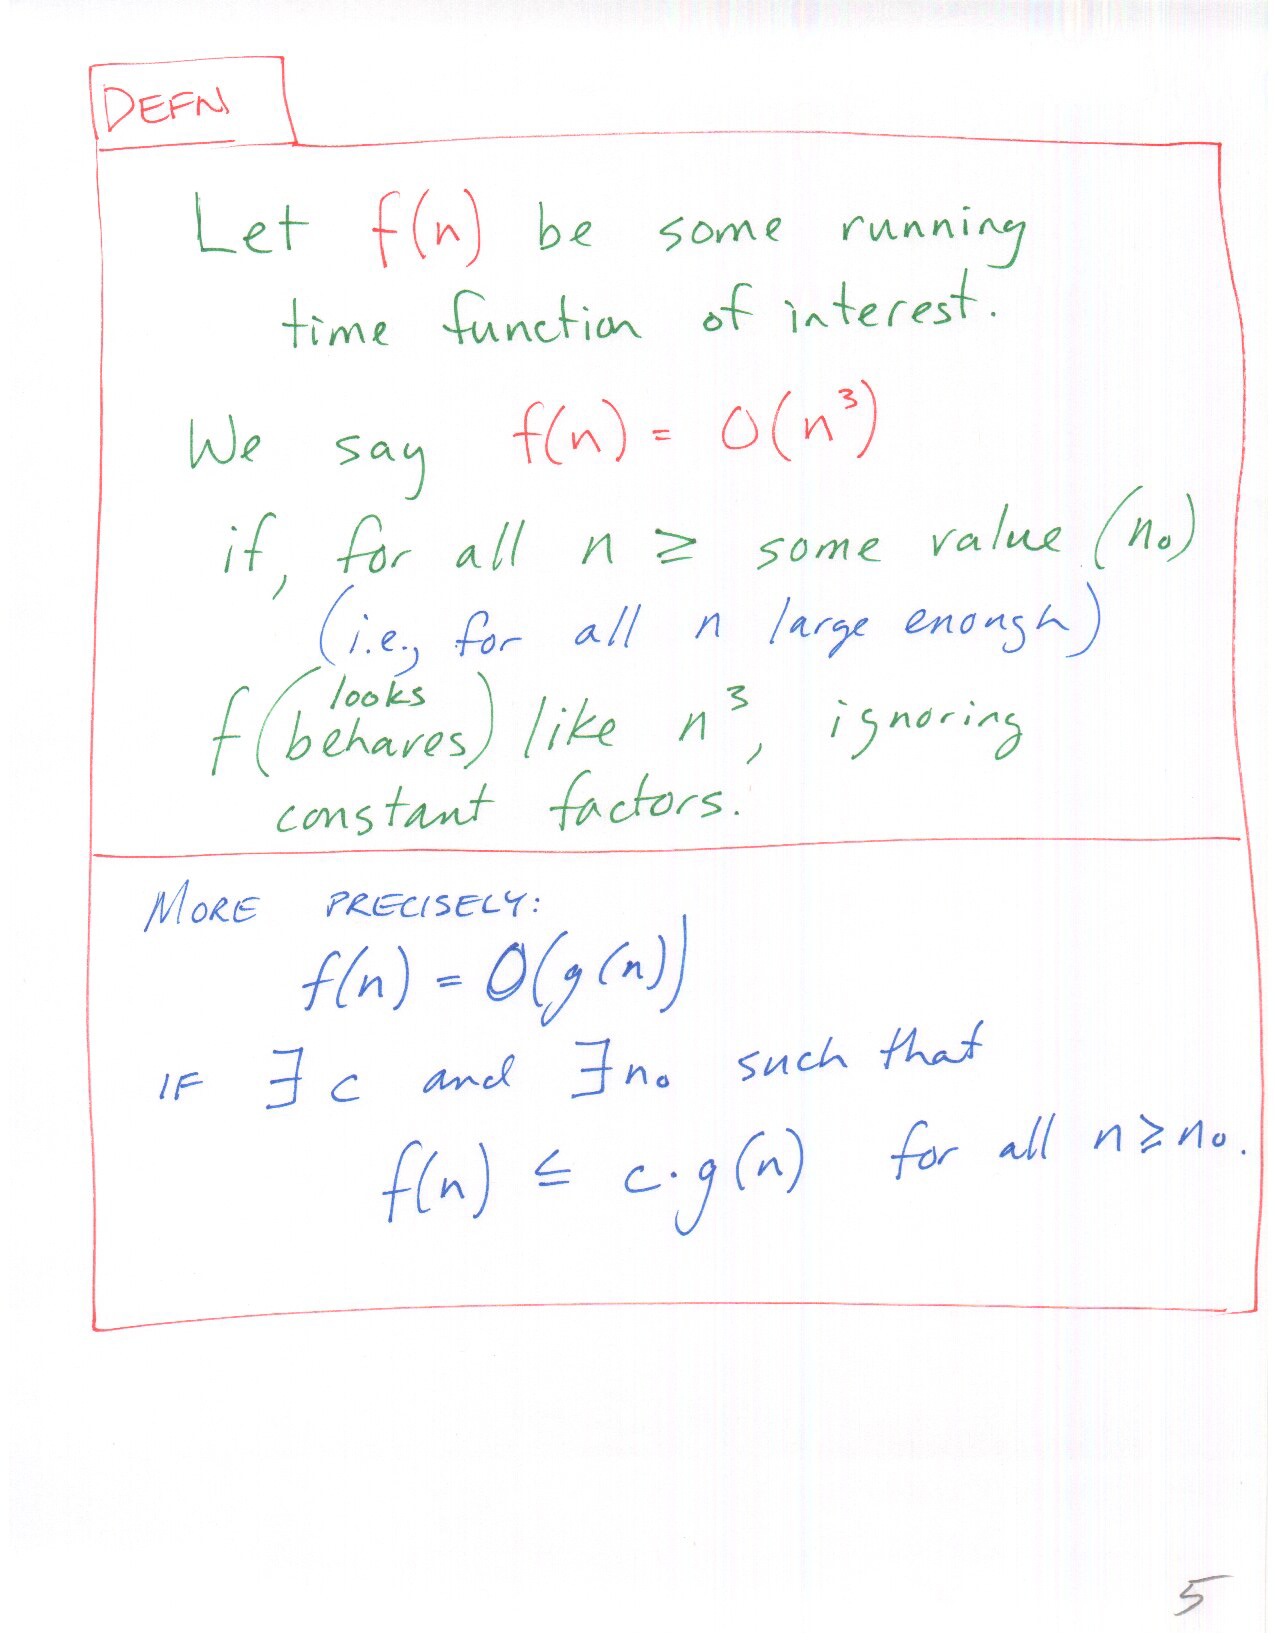 DEFN
Let f(n) be some running
time function of interest.
We say f(n) = O(n³)
if, for all n ≥ some value (n₀)
(i.e., for all n large enough)
looks
f (behaves) like n³, ignoring
constant factors.
MORE PRECISELY:
f(n) = O(g(n))
IF ∃ c and ∃ n₀ such that
f(n) ≤ c·g(n) for all n ≥ n₀.
5